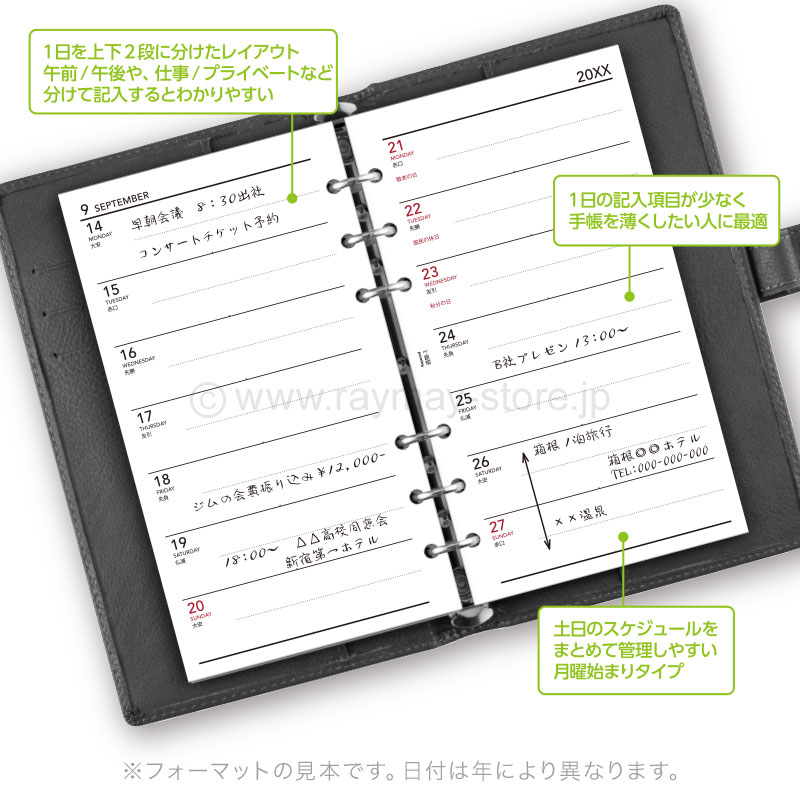 1日を上下2段に分けたレイアウト
午前/午後や、仕事/プライベートなど
分けて記入するとわかりやすい
9 SEPTEMBER
14
MONDAY
大安
早朝会議 8:30出社
コンサートチケット予約
15
TUESDAY
赤口
16
WEDNESDAY
先勝
17
THURSDAY
友引
18
FRIDAY
先負
ジムの会費振り込み¥12,000-
19
SATURDAY
仏滅
18:00〜 △△高校同窓会
新宿第一ホテル
20
SUNDAY
大安
20XX
21
MONDAY
赤口
敬老の日
22
TUESDAY
先勝
国民の休日
23
WEDNESDAY
友引
秋分の日
24
THURSDAY
先負
B社プレゼン 13:00〜
25
FRIDAY
仏滅
26
SATURDAY
大安
箱根1泊旅行
箱根◎◎ホテル
TEL:000-000-000
27
SUNDAY
赤口
××温泉
1日の記入項目が少なく
手帳を薄くしたい人に最適
土日のスケジュールを
まとめて管理しやすい
月曜始まりタイプ
© www.raymay-store.jp
※フォーマットの見本です。日付は年により異なります。